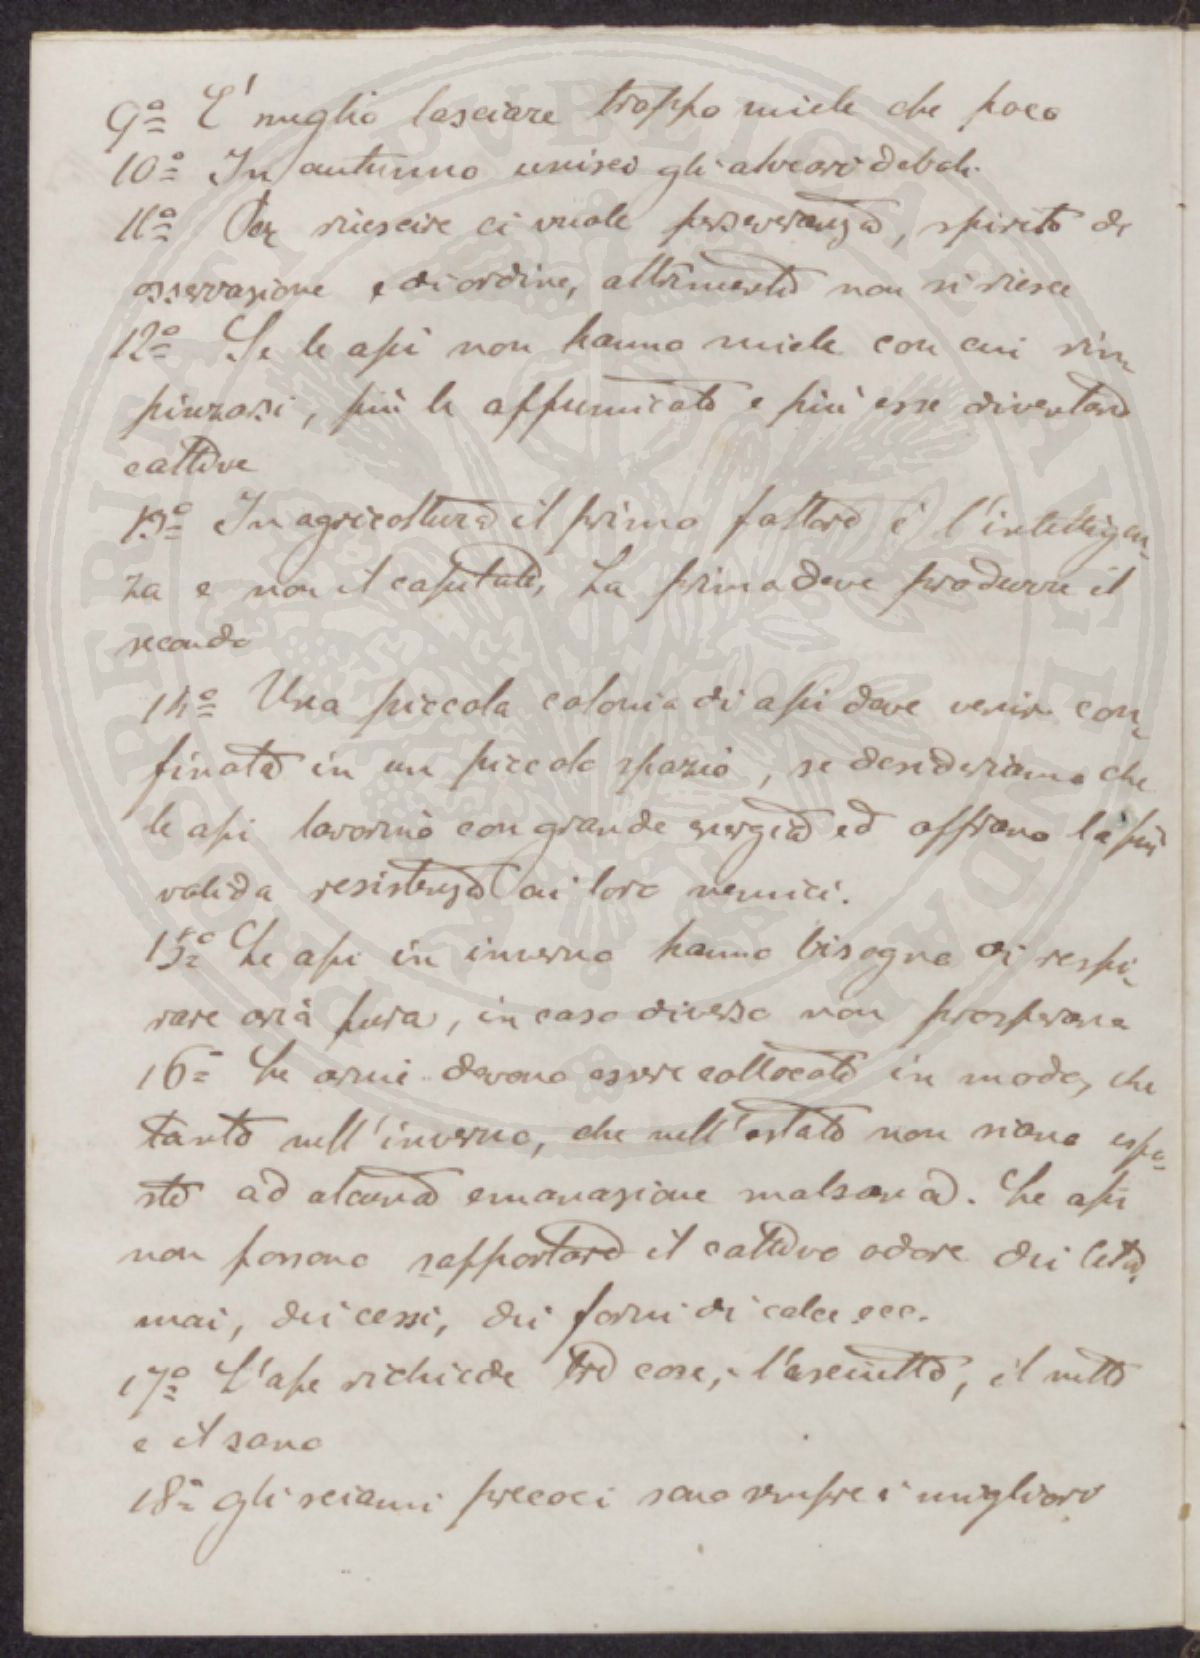 9º E' meglio lasciare troppo miele che poco
10º In autunno unisci gli alveari deboli.
11º Per riescire ci vuole perseveranza, spirito di
osservazione e di ordine, altrimenti non si riesce
12º Se le api non hanno miele con cui rim-
pinzarsi, più le affumicate e più esse diventano
cattive
13º In agricoltura il primo fattore è l'intelligen-
za e non il capitale, La prima deve produrre il
secondo
14º Una piccola colonia di api deve venir con-
finata in un piccolo spazio, se desideriamo che
le api lavorino con grande energia ed offrano la più
valida resistenza ai loro nemici.
15º Le api in inverno hanno bisogno di respi-
rare aria pura, in caso diverso non prosperano
16º Le arnie devono essere collocate in modo, che
tanto nell'inverno, che nell'estate non siano espo-
ste ad alcuna emanazione malsana. Le api
non possono sopportare il cattivo odore dei leta-
mai, dei cessi, dei forni di calce ecc.
17º L'ape richiede tre cose, l'asciutto, il netto
e il sano
18º gli sciami precoci sono sempre i migliori
PROPRIETATI PVBLICAE VALETVDINI DA